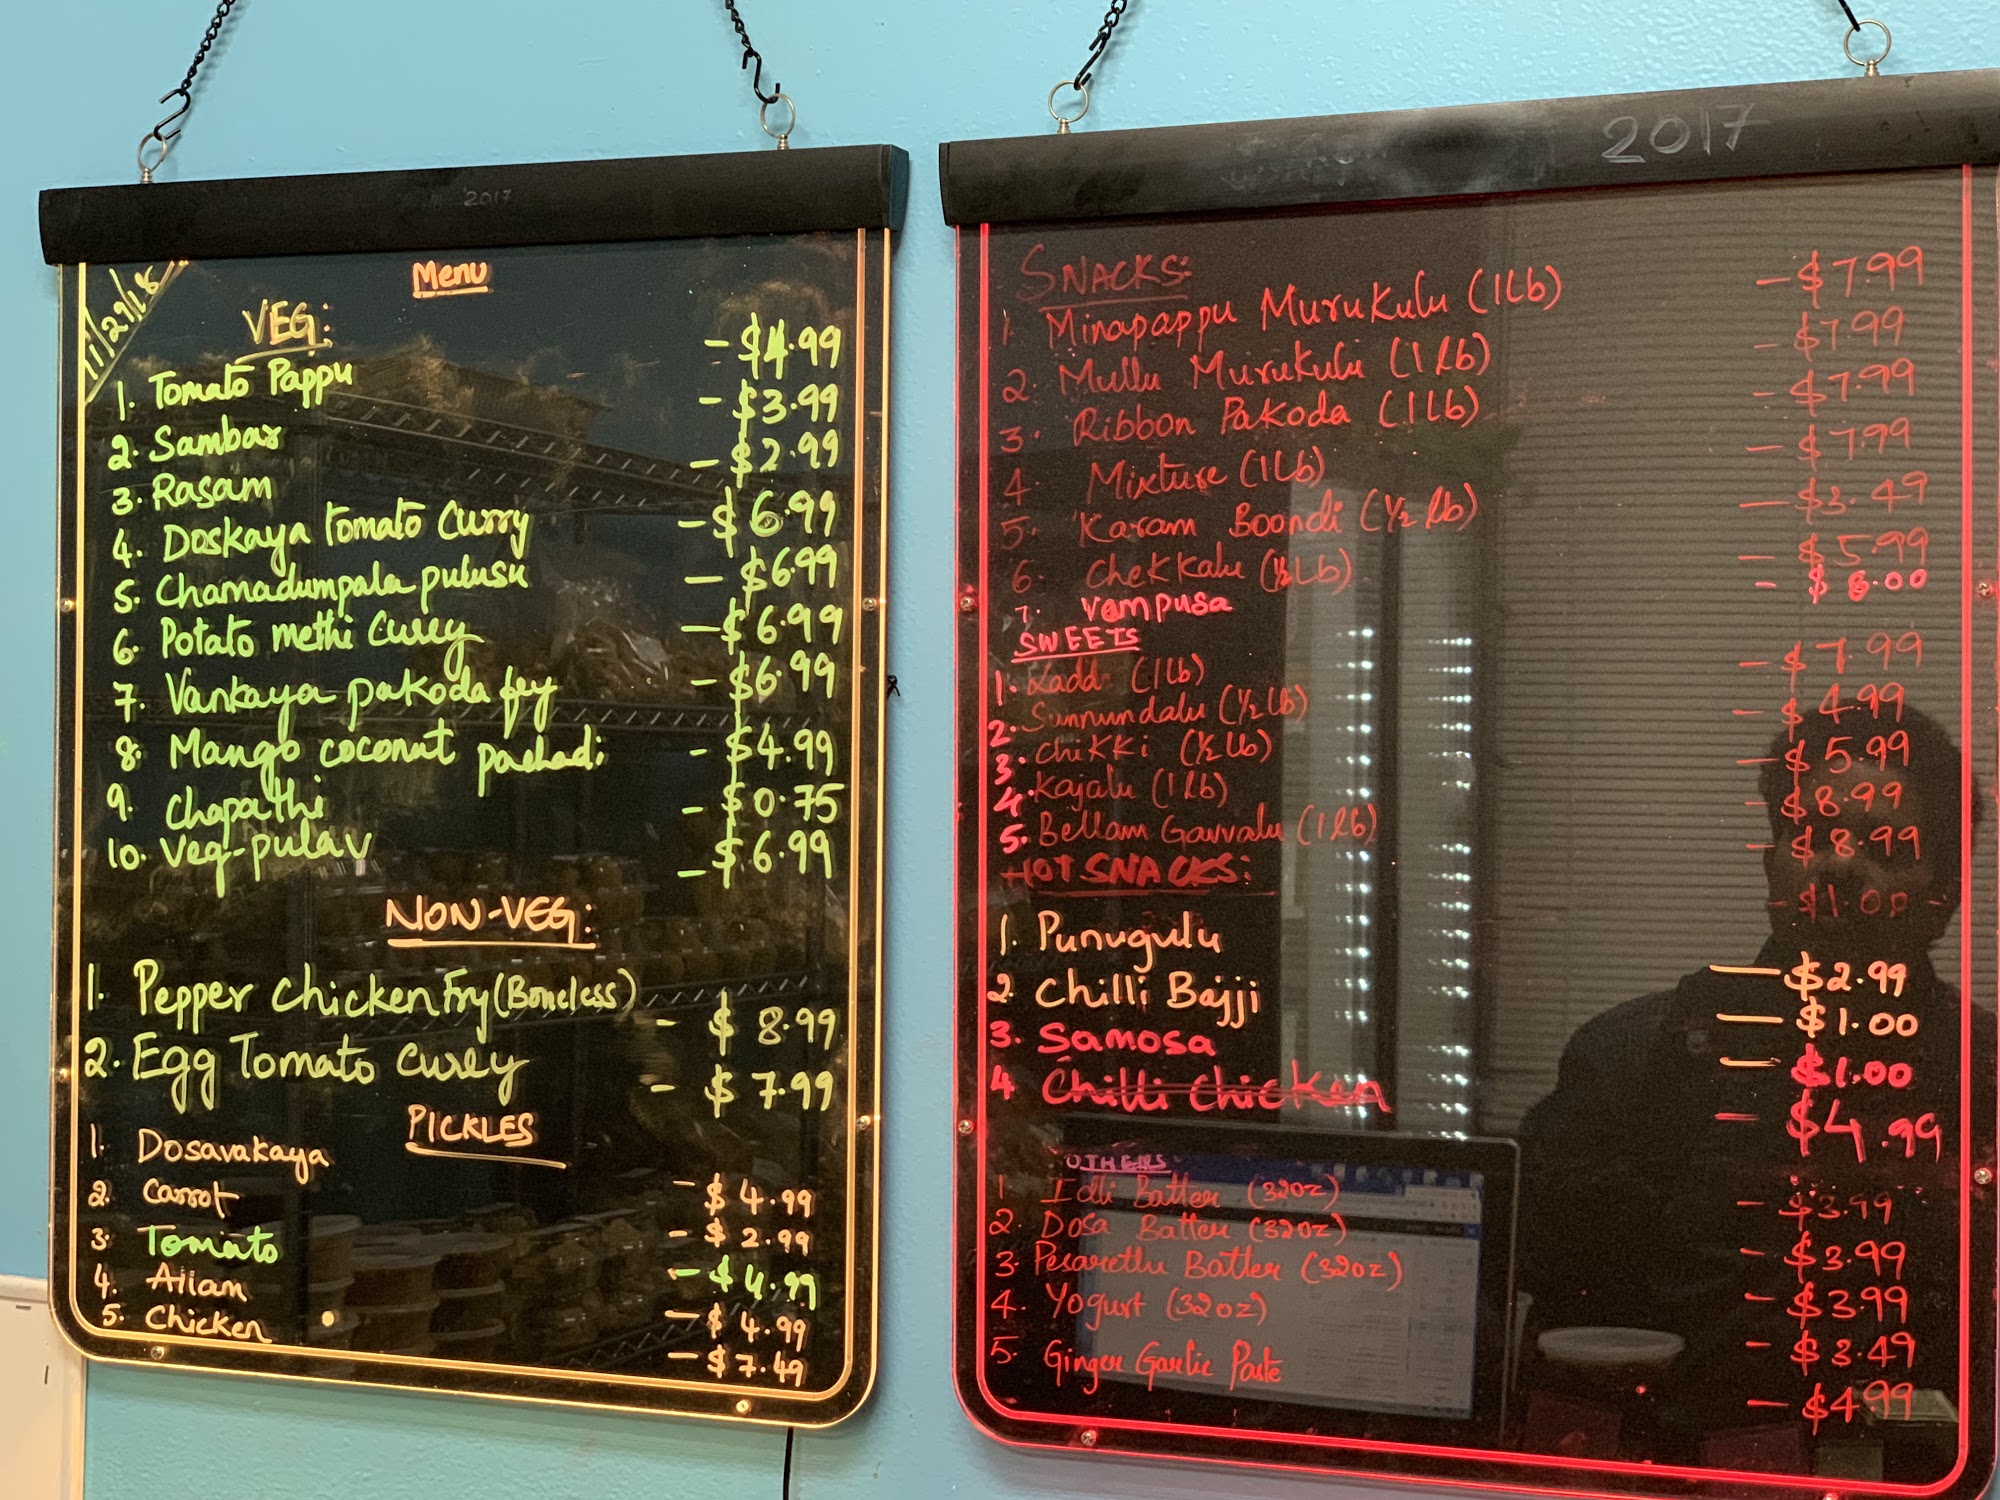 2017
11/29/18
Menu
VEG:
1. Tomato Pappu - $4.99
2. Sambar - $3.99
3. Rasam - $2.99
4. Doskaya tomato Curry - $6.99
5. Chamadumpala pulusu - $6.99
6. Potato methi Curry - $6.99
7. Vankaya pakoda fry - $6.99
8. Mango coconut pachadi - $4.99
9. Chapathi - $0.75
10. Veg-pulav - $6.99
NON-VEG:
1. Pepper chicken Fry (Boneless) - $8.99
2. Egg Tomato Curry - $7.99
PICKLES
1. Dosavakaya - $4.99
2. Carrot - $2.99
3. Tomato - $4.99
4. Allam - $4.99
5. Chicken - $7.49
2017
SNACKS:
1. Minapappu Murukulu (1Lb) - $7.99
2. Mullu Murukulu (1 lb) - $7.99
3. Ribbon Pakoda (1Lb) - $7.99
4. Mixture (1Lb) - $7.99
5. Karam Boondi (1/2 lb) - $3.49
6. Chekkalu (1/2 Lb) - $5.99
7. Vampusa - $8.00
SWEETS
1. Laddu (1Lb) - $7.99
2. Sunnundalu (1/2 Lb) - $4.99
3. Chikki (1/2 Lb) - $5.99
4. Kajalu (1 lb) - $8.99
5. Bellam Gavvalu (1 lb) - $8.99
HOT SNACKS: - $1.00 -
1. Punugulu - $2.99
2. Chilli Bajji - $1.00
3. Samosa - $1.00
4 Chilli Chicken - $4.99
OTHERS
1. Idli Batter (32oz) - $3.99
2. Dosa Batter (32oz) - $3.99
3. Pesarettu Batter (32oz) - $3.99
4. Yogurt (32oz) - $3.49
5. Ginger Garlic Paste - $4.99